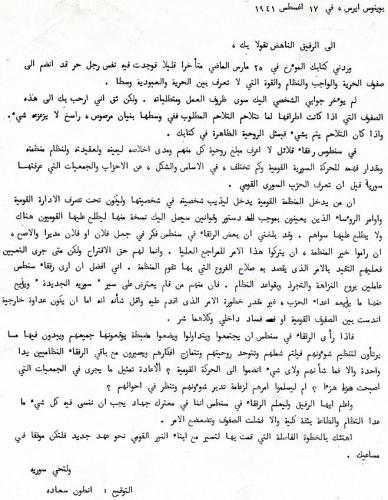 بوينوس ايرس ، في ١٧ اغسطس ١٩٤١
الى الرفيق الناهض نقولا بك ،
وردني كتابك المؤرخ في ٢٥ مارس الماضي متأخرا قليلا فوجدت فيه نفس رجل حر قد انضم الى
صفوف الحرية والواجب والنظام والقوة التي لا تعرف بين الحرية والعبودية وسطا .
لم يؤخر جوابي الشخصي اليك سوى ظروف العمل ومتطلباته . ولكن ثق اني ارحب بك الى هذه
الصفوف التي اذا كانت اطرافها لما تتلاحم التلاحم المطلوب ففي وسطها بنيان مرصوص ، راسخ لا يزعزعه شيء .
واذا كان التلاحم يتم بشيء فبمثل الروحية الظاهرة في كتابك .
في سنطوس رفقاء قلائل لا اعرف مبلغ روحية كل منهم ومدى اخلاصه ليمينه ولعقيدته ولنظام منظمته
ومقدار فهمه للحركة السورية القومية وكم تختلف ، في الاساس والشكل ، عن الاحزاب والجمعيات التي عرفتها
سورية قبل ان تعرف الحزب السوري القومي .
ان من يدخل المنظمة القومية يدخل ليذيب شخصيته في شخصيتها وليكون تحت تصرف الادارة القومية
واوامر الرؤساء الذين يعينون بموجب دستور وقوانين سيصل اليك نسخة منها ليطلع عليها القوميون هناك
ولا يطلع عليها سواهم . وقد بلغني ان بعض الرفقاء في سنطس فكر في جعل فلان او فلان مديرا والاصح ،
ان راموا خير المنظمة ، ان يتركوا هذا الامر للمراجع العليا . وانما لهم حق الاقتراح ولكن متى جرى التعيين
فعليهم التقيد بالامر الذي يقصد به صلاح الفروع التي بها تقوم المنظمة . اني افضل ان ارى رفقاء سنطس
عاملين بروح النزاهة والتجرد وقواعد النظام . فان منهم من قام يعترض على سير " سورية الجديدة " ويؤيد
ضمنا ما يذيعه اعداء الحزب ، غير مقدر خطورة الامر الذي اقدم عليه واقل شأنه انه اما ان يكون عداوة خارجية
اندست بين الصفوف القومية او فساد داخلي وكلاهما شر .
فاذا رأى الرفقاء في سنطس ان يجتمعوا ويتداولوا ويضعوا ضبطة يوقعونها جميعهم ويبدون فيها ما
يرتأون لتنظيم شؤونهم فيلتم شملهم وتتوحد روحيتهم وتتمازج افكارهم ويصيرون مع باقي الرفقاء النظاميين يدا
واحدة والا فما شأنهم ولأي شيء انضموا الى الحركة القومية ؟ ألاعادة تمثيل ما يجرى في الجمعيات التي
اصبحت هزءا ؟ ام ليسلموا امرهم لزعامة تدير شؤونهم وتنظر في احوالهم ؟
واعلم ايها الرفيق وليعلم الرفقاء في سنطس اننا في معترك جهاد يجب ان ننسى فيه كل شيء ما
عدا النظام والطاعة بثقة كلية والا فشلت الصفوف وتضعضع الامر .
اهنئك بالخطوة الفاصلة التي قمت بها لتسير مع ابناء النور القومي نحو عهد جديد فلتكن موفقا في
مساعيك .
ولتحي سورية
التوقيع : انطون سعاده